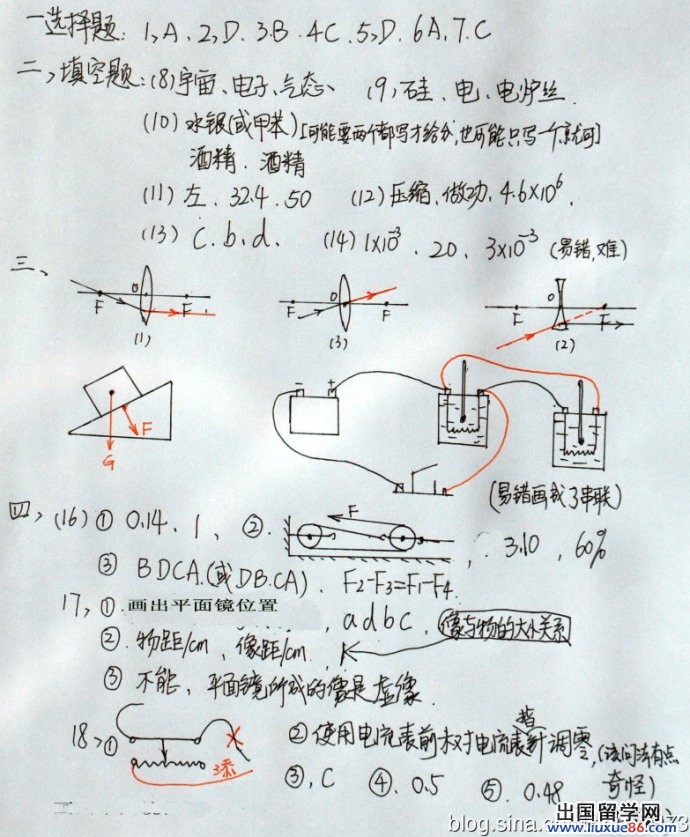 一选择题: 1、A. 2、D. 3.B. 4C. 5、D. 6A, 7.C
二、填空题: (8)宇宙、电子、气态、 (9、硅、电、电炉丝.
(10) 水银(或甲苯)[可能要两个都写才给分,也可能只写一个就可]
酒精. 酒精
(11) 左. 32.4. 50 (12) 压缩、做功、4.6×10⁶.
(13) C. b. d. (14) 1×10⁻³. 20. 3×10⁻³ (易错,难)
三、
F O F
(1)
F O F
(3)
F O F
(2)
F
G
- +
(易错画成了串联)
四、(16) ① 0.14. 1、 ②. F 3.10, 60%
③ BDCA.(或DB.CA). F₂-F₃=F₁-F₄.
17、①.画出平面镜位置, adbc, 像与物的大小关系
②. 物距/cm, 像距/cm.
③ 不能、平面镜所成的像是虚像.
18、① 3添
②使用电流表前未对电流表指针调零,(该问法有点奇怪)
③, C ④. 0.5 ⑤. 0.48
blog.sina.c
出国留学网
www.liuxue86.com